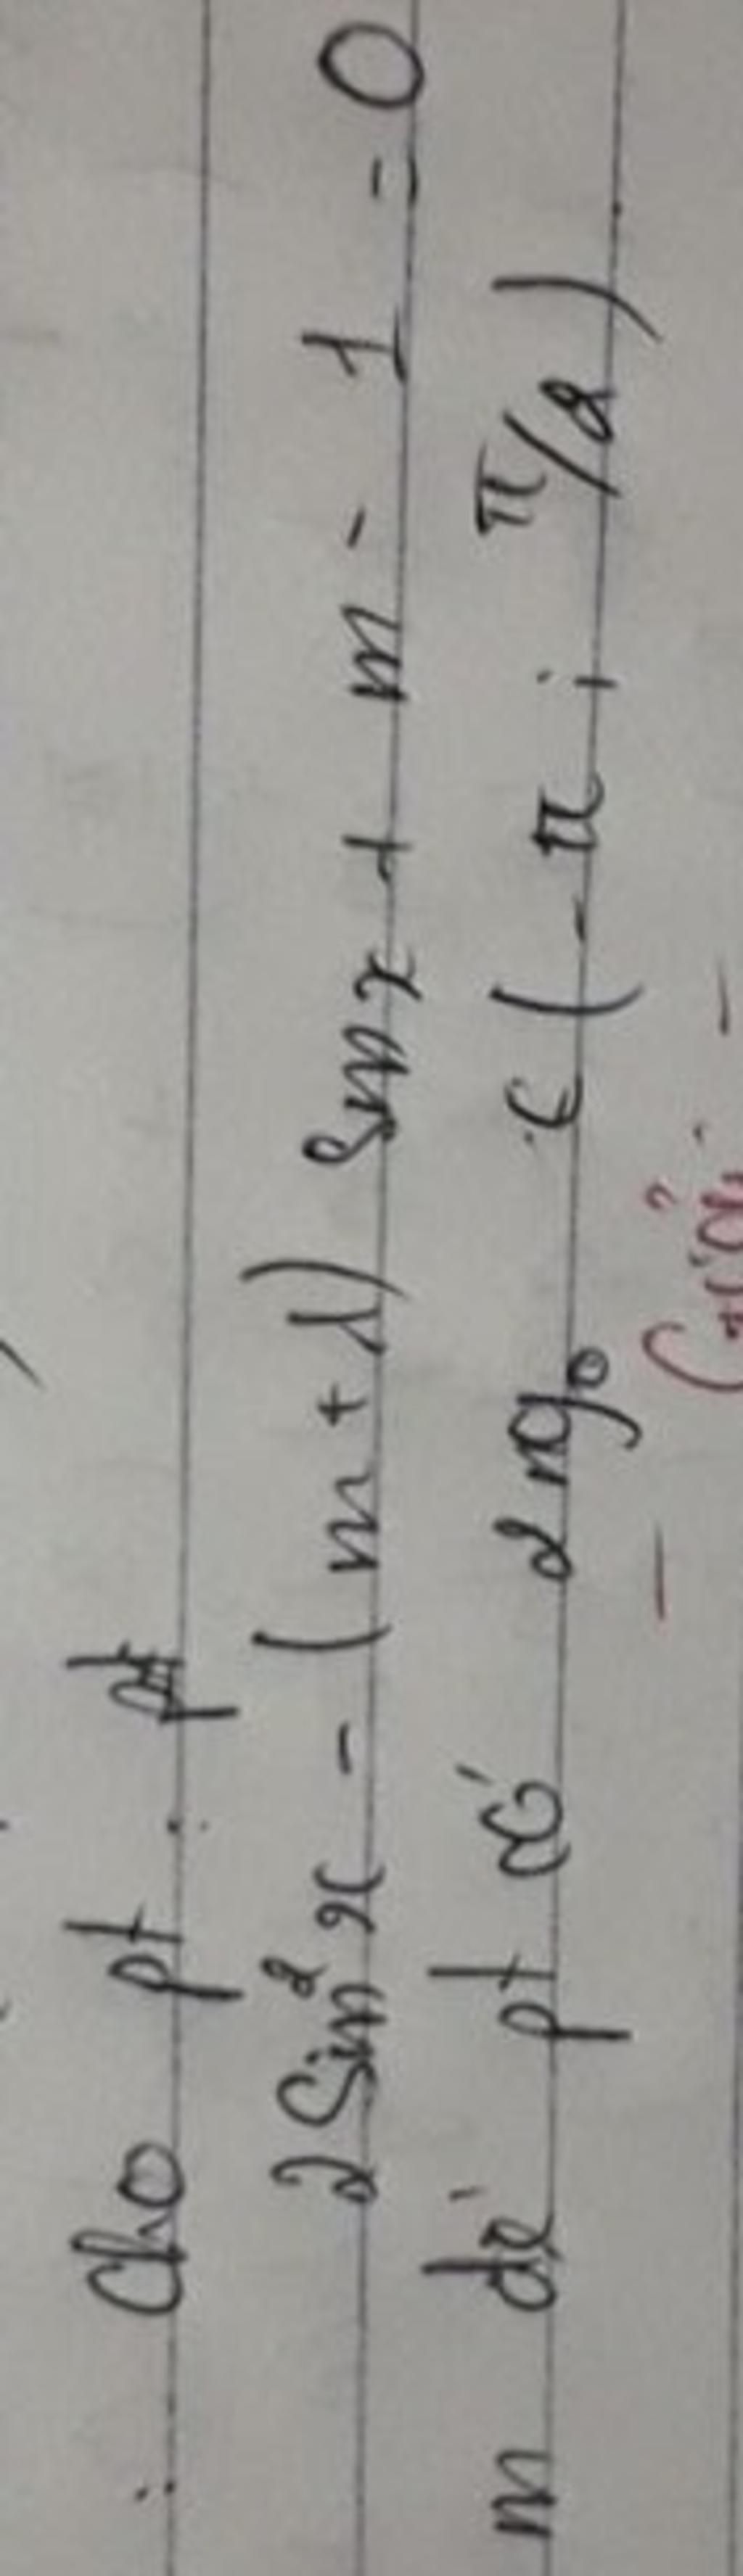 : Cho pt :
2 Sin² x - (m + 1) sin x + m - 1 = 0
m để pt có 2 ng₀ ∈ ( - π ; π/2 ) .
- Giải -